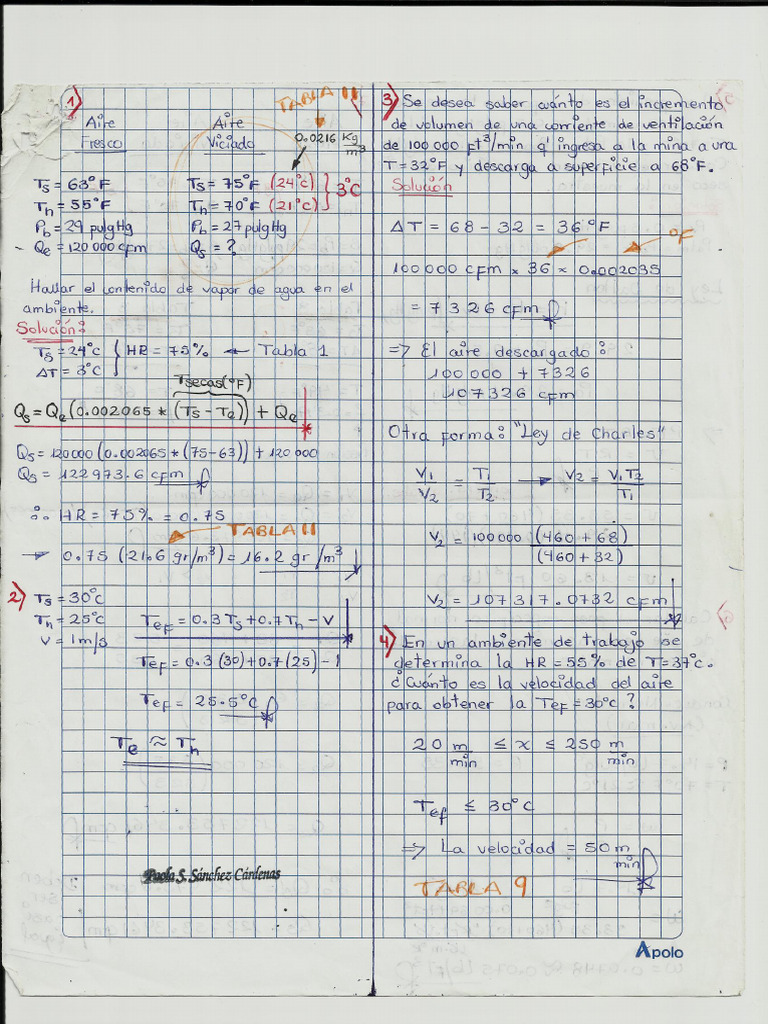 1)
TABLA 11
Aire Fresco
Aire Viciado
0.0216 Kg/m³
Ts = 63°F
Th = 55°F
Pb = 29 pulgHg
Qe = 120 000 cfm
Ts = 75°F (24°C)
Th = 70°F (21°C)
} 3°C
Pb = 27 pulgHg
Qs = ?
Hallar el contenido de vapor de agua en el
ambiente.
Solución:
Ts = 24°C
ΔT = 3°C
} HR = 75% ← Tabla 1
Tsecas(°F)
Qs = Qe (0.002065 * (Ts - Te)) + Qe
Qs = 120000 (0.002065 * (75-63)) + 120 000
Qs = 122973.6 cfm
∴ HR = 75% = 0.75
TABLA 11
→ 0.75 (21.6 gr/m³) = 16.2 gr/m³
2) Ts = 30°C
Th = 25°C
V = 1m/s
Tef = 0.3 Ts + 0.7 Th - V
Tef = 0.3 (30) + 0.7 (25) - 1
Tef = 25.5°C
Te ≈ Th
Paola S. Sánchez Cárdenas
3) Se desea saber cuánto es el incremento
de volumen de una corriente de ventilación
de 100 000 ft³/min q' ingresa a la mina a una
T = 32°F y descarga a superficie a 68°F.
Solución
ΔT = 68 - 32 = 36°F
°F
100 000 cfm * 36 * 0.002035
= 7326 cfm
=> El aire descargado:
100 000 + 7326
107326 cfm
Otra forma: "Ley de Charles"
V1/V2 = T1/T2 → V2 = V1T2/T1
V2 = 100000 (460 + 68)/(460 + 32)
V2 = 107317.0732 cfm
4) En un ambiente de trabajo se
determina la HR = 55% de T = 37°C.
¿Cuánto es la velocidad del aire
para obtener la TEF = 30°C?
20 m/min ≤ x ≤ 250 m/min
Tef ≤ 30°C
=> La velocidad = 50 m/min
TABLA 9
Apolo